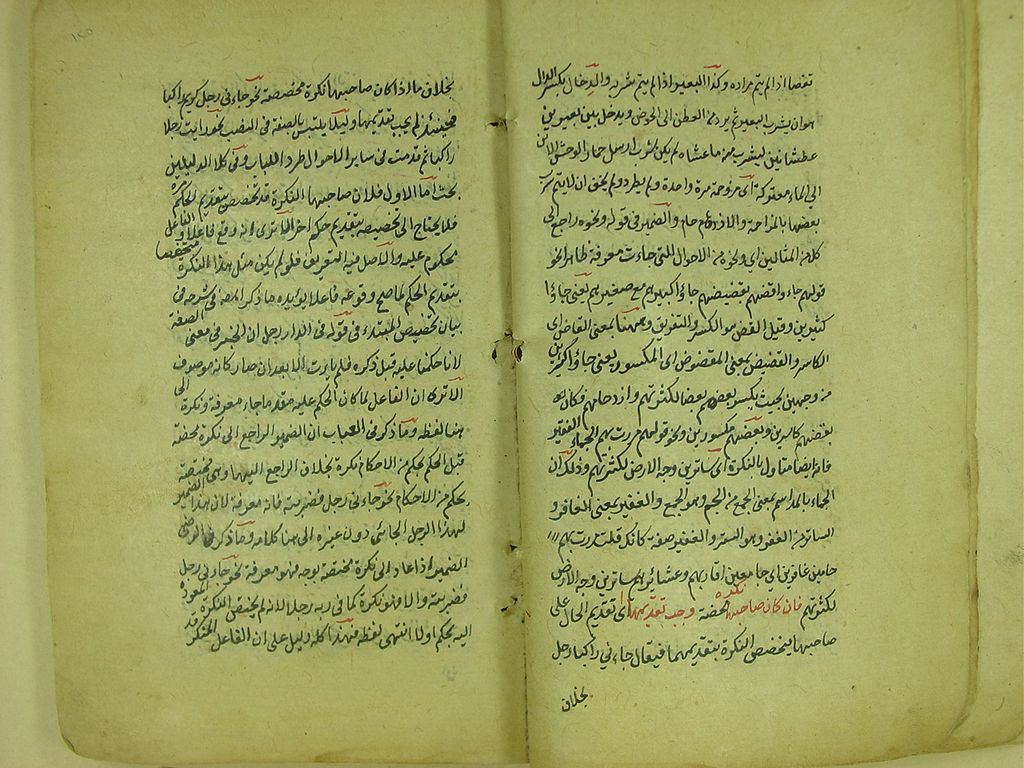 نغصا اذا لم يتم مراده وكذا البعير اذا لم يتم شربه والدخال بكسر الدال
هو ان يشرب البعير ثم يرد من العطن الى الحوض ويدخل بين بعيرين
عطشانين ليشرب منه ما عساه لم يكن شرب ارسل حمار الوحش الاتن
الى الماء معتركة اى مزدحمة مرة واحدة ولم يطردو لم يخف ان لا يتم شرب
بعضها بالمزاحمة والازدحام حام والضمير فى قوله ونحوه راجع الى
كل من المثالين اى ونحوه من الاحوال التى جاءت معرفة ظاهرا نحو
قولهم جاء واقضهم بقضيضهم جاؤا كبيرهم مع صغيرهم يعنى جاؤا
كثيرين وقيل القض هو الكسر والتفريق وههنا بمعنى القاض اى
الكاسر والقضيض بمعنى المقضوض اى المكسور يعنى جاؤا
مزدحمين بحيث يكسر بعضهم بعضا لكثرتهم وازدحامهم فكان
بعضهم كاسرين وبعضهم مكسورين ونحو قولهم مررت بهم الجماء الغفير
فانه ايضا متاول بالنكرة اى ساترين وجه الارض لكثرتهم وذلك ان
الجماء بالمد اسم بمعنى الجمع من الجم وهو الجمع والغفير بمعنى الغافر و
الساتر من الغفر وهو الستر والغفير صفة كانك قلت مررت بهم
جامين غافرين اى جامعين اقاربهم وعشائرهم ساترين وجه الارض
لكثرتهم فان كان صاحبها نكرة محضة وجب تقديمها اى تقديم الحال على
صاحبها ليتخصص النكرة بتقديمها فيقال جاءنى راكبا رجل
بخلاف
بخلاف ما اذا كان صاحبها نكرة مخصصة نحو جاءنى رجل كريم راكبا
فحينئذ لم يجب تقديمها وليلا يلتبس بالصفة فى النصب نحو رايت رجلا
راكبا ثم قدمت فى ساير الاحوال طردا للباب وفى كلا الدليلين
بحث اما الاول فلان صاحبها النكرة قد تخصص بتقديم الحكم
فلا يحتاج الى تخصيصه بتقديم حكم اخر الا ترى انه وقع فاعلا والفاعل
محكوم عليه والاصل فيه التعريف فلو لم يكن مثل هذا النكرة متخصصا
بتقديم الحكم لما صح وقوعه فاعلا يؤيده ما ذكر المص فى شرحه فى
بيان تخصيص المبتداء فى قوله فى الدار رجل ان الخبر فى معنى الصفة
لانا حكمنا عليه قبل ذكره فلم يات الا بعد ان صار كانه موصوف
الا ترى ان الفاعل لما كان الحكم عليه مقدما جاء معرفة ونكرة الى
هنا لفظه وما ذكر فى العباب ان الضمير الراجع الى نكرة محضة
قبل الحكم بحكم من الاحكام نكرة بخلاف الراجع اليها وهى مختصة
بحكم من الاحكام نحو جاءنى رجل فضربته فانه معرفة لان هذا الضمير
لهذا الرجل الجائى دون غيره الى هنا كلامه وما ذكر فى الرضى
الضمير اذا عاد الى نكرة مختصة بوجه فهو معرفة نحو جاءنى رجل
فضربته والا فهو نكرة كما فى ربه رجلا لانه لم يختص النكرة المعود
اليه بحكم اولا انتهى لفظه فهذا كله دليل على ان الفاعل المنكر قد